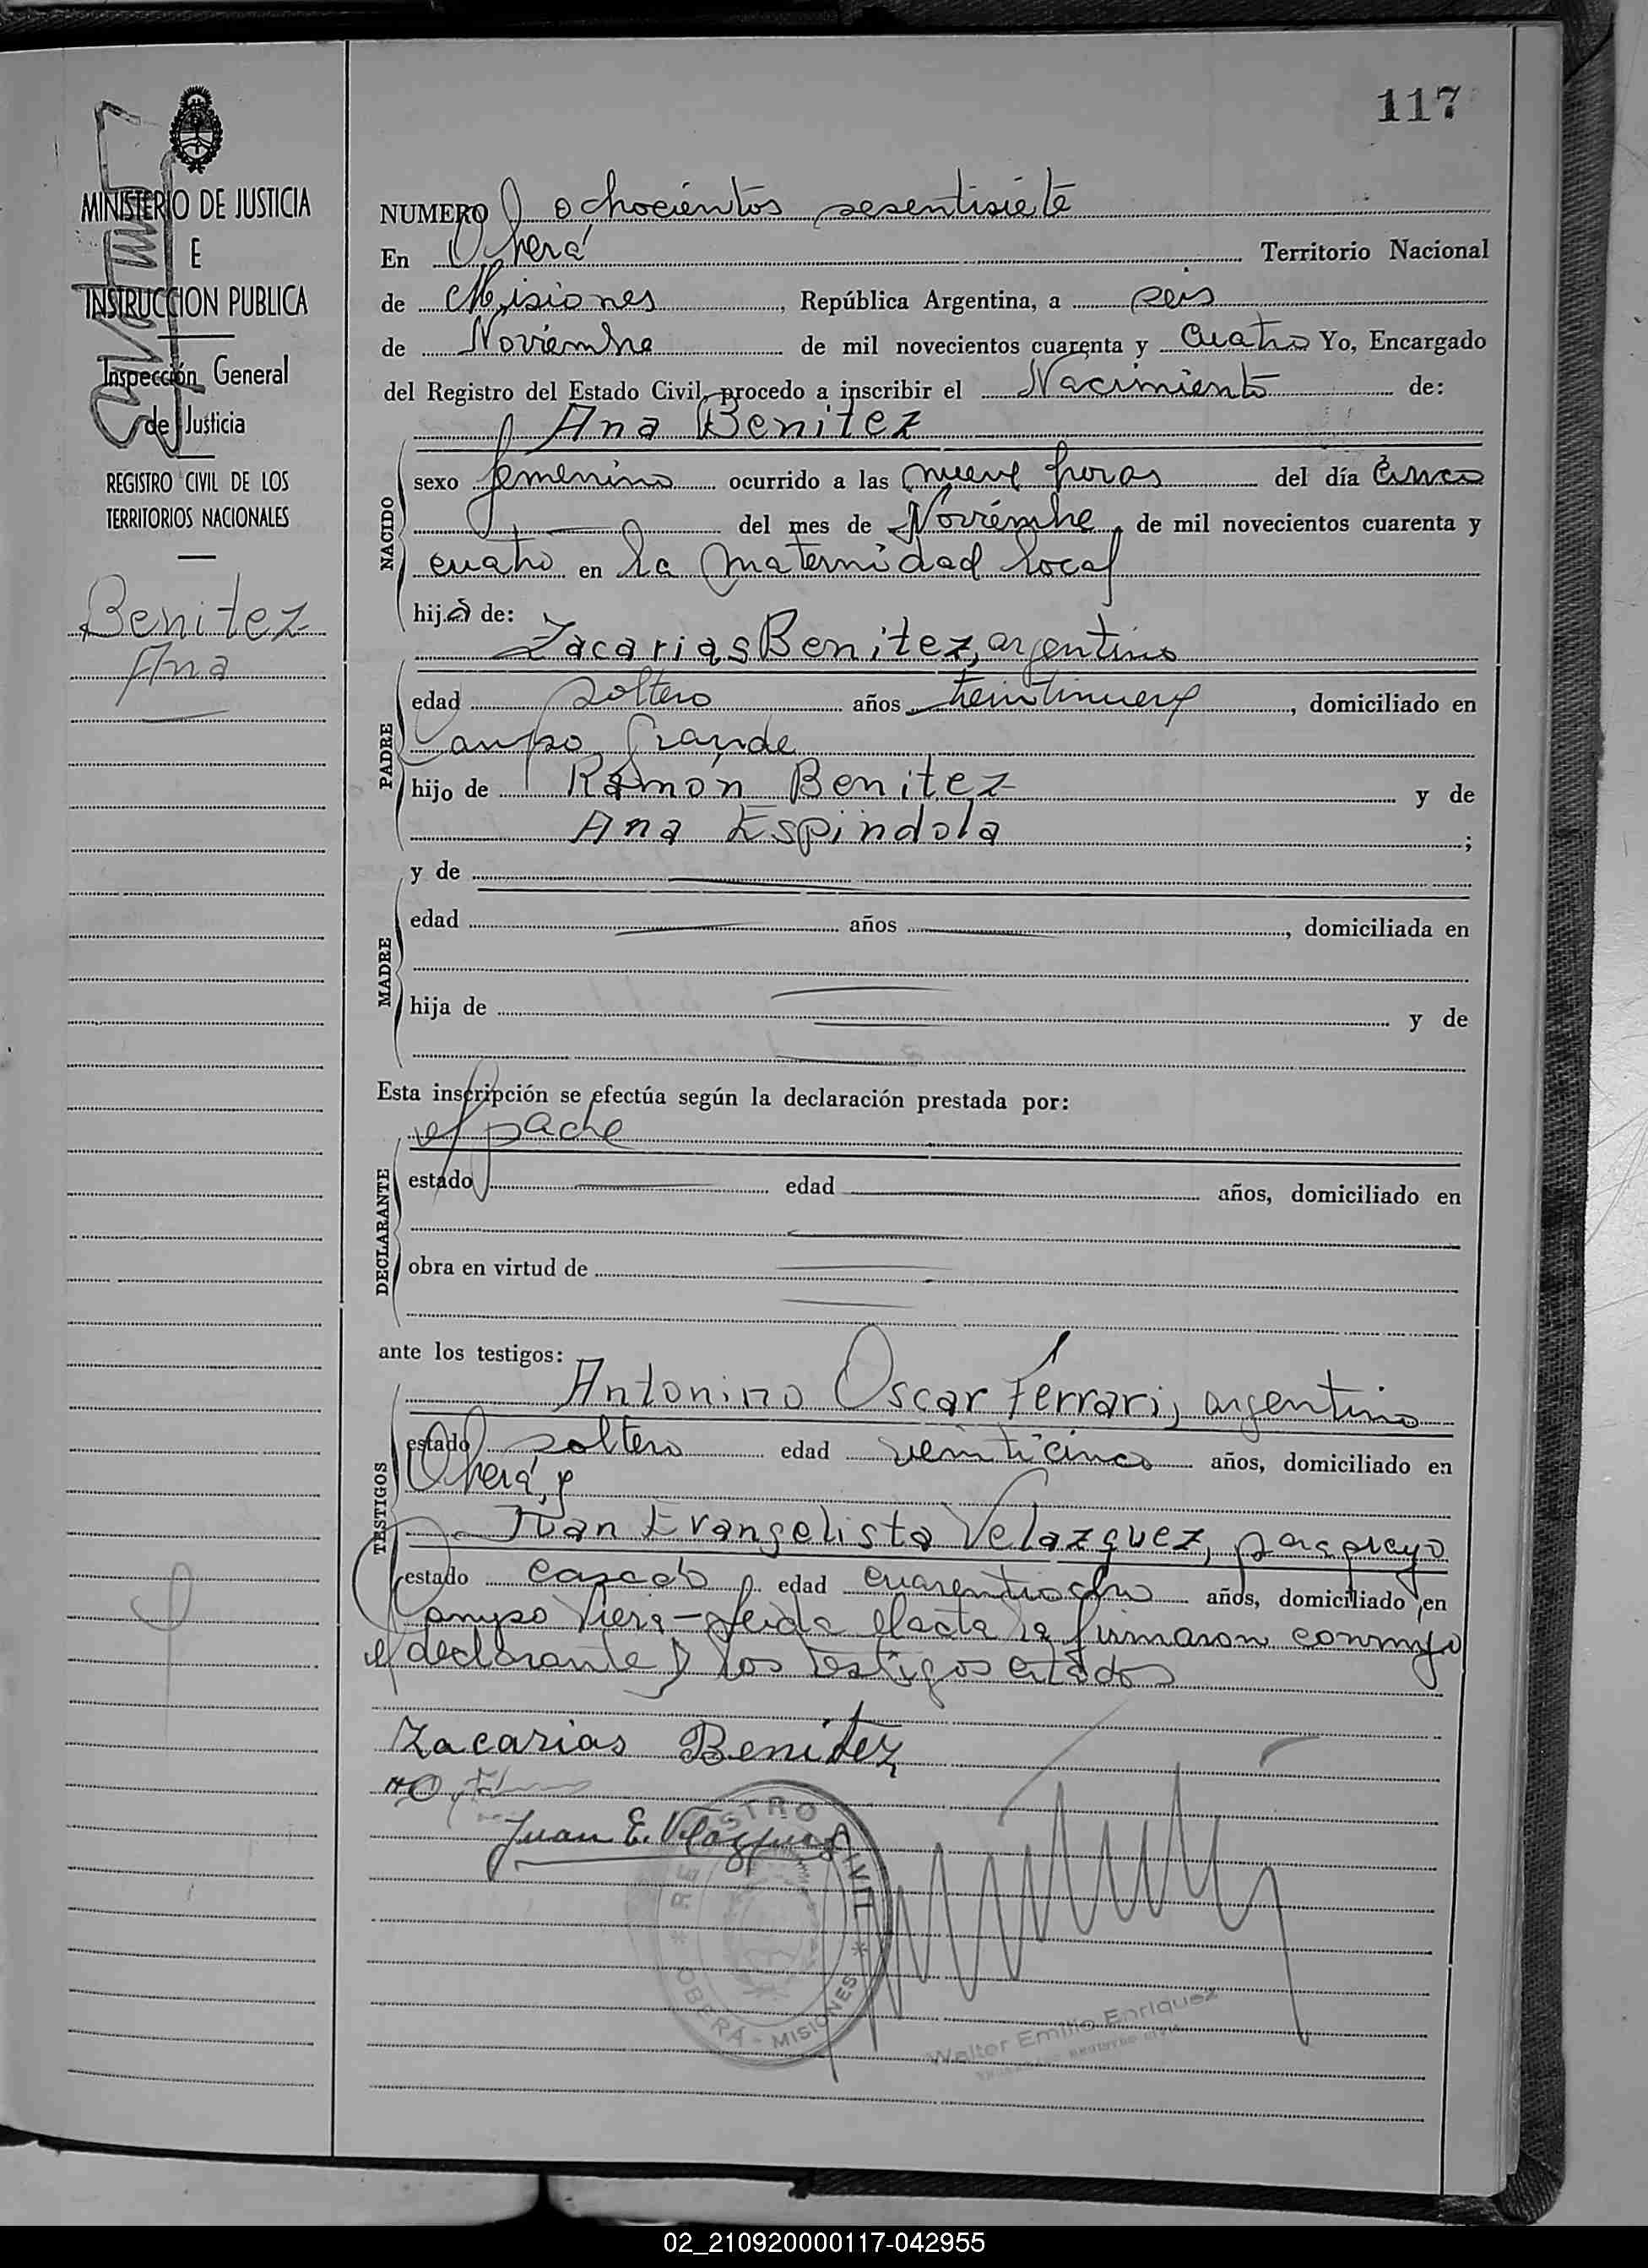 117
MINISTERIO DE JUSTICIA
E
INSTRUCCION PUBLICA
Inspección General
de Justicia
REGISTRO CIVIL DE LOS
TERRITORIOS NACIONALES
Benitez
Ana
NUMERO ochocientos sesentisiete
En Oberá Territorio Nacional
de Misiones, República Argentina, a seis
de Noviembre de mil novecientos cuarenta y cuatro Yo, Encargado
del Registro del Estado Civil, procedo a inscribir el Nacimiento de:
Ana Benitez
NACIDO
sexo femenino ocurrido a las nueve horas del día cinco
del mes de Noviembre, de mil novecientos cuarenta y
cuatro en la maternidad local
hija de:
Zacarias Benitez, argentino
PADRE
edad soltero años treintinueve, domiciliado en
Campo Grande
hijo de Ramón Benitez y de
Ana Espindola ;
y de
MADRE
edad años , domiciliada en
hija de y de
Esta inscripción se efectúa según la declaración prestada por:
el padre
DECLARANTE
estado edad años, domiciliado en
obra en virtud de
ante los testigos:
Antonino Oscar Ferrari, argentino
TESTIGOS
estado soltero edad veinticinco años, domiciliado en
Oberá, y
Juan Evangelista Velazquez, paraguayo
estado casado edad cuarentiocho años, domiciliado en
Campo Viera - leida el acta la firmaron conmigo
el declarante y los testigos citados
Zacarias Benitez
Juan E. Velazquez
REGISTRO CIVIL
* OBERÁ - MISIONES *
Walter Emilio Enriquez
02_210920000117-042955